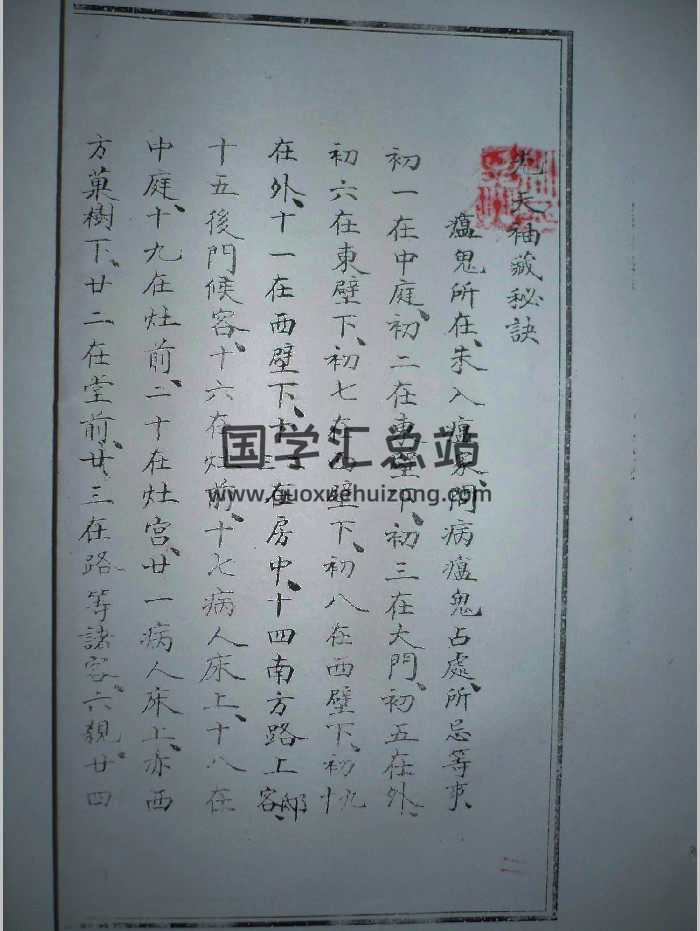 先天袖藏秘訣
瘟鬼所在、未入瘟家、問病瘟鬼占處、所忌等事
初一在中庭、初二在東壁下、初三在大門、初五在外、
初六在東壁下、初七在西壁下、初八在西壁下、初九十
在外、十一在西壁下、十三在房中、十四南方路上客邸、
十五後門候客、十六在灶前、十七病人床上、十八在
中庭、十九在灶前、二十在灶宮、廿一病人床上、亦西
方菓樹下、廿二在堂前、廿三在路等諸客、六親、廿四
国学汇总站
www.guoxuehuizong.com